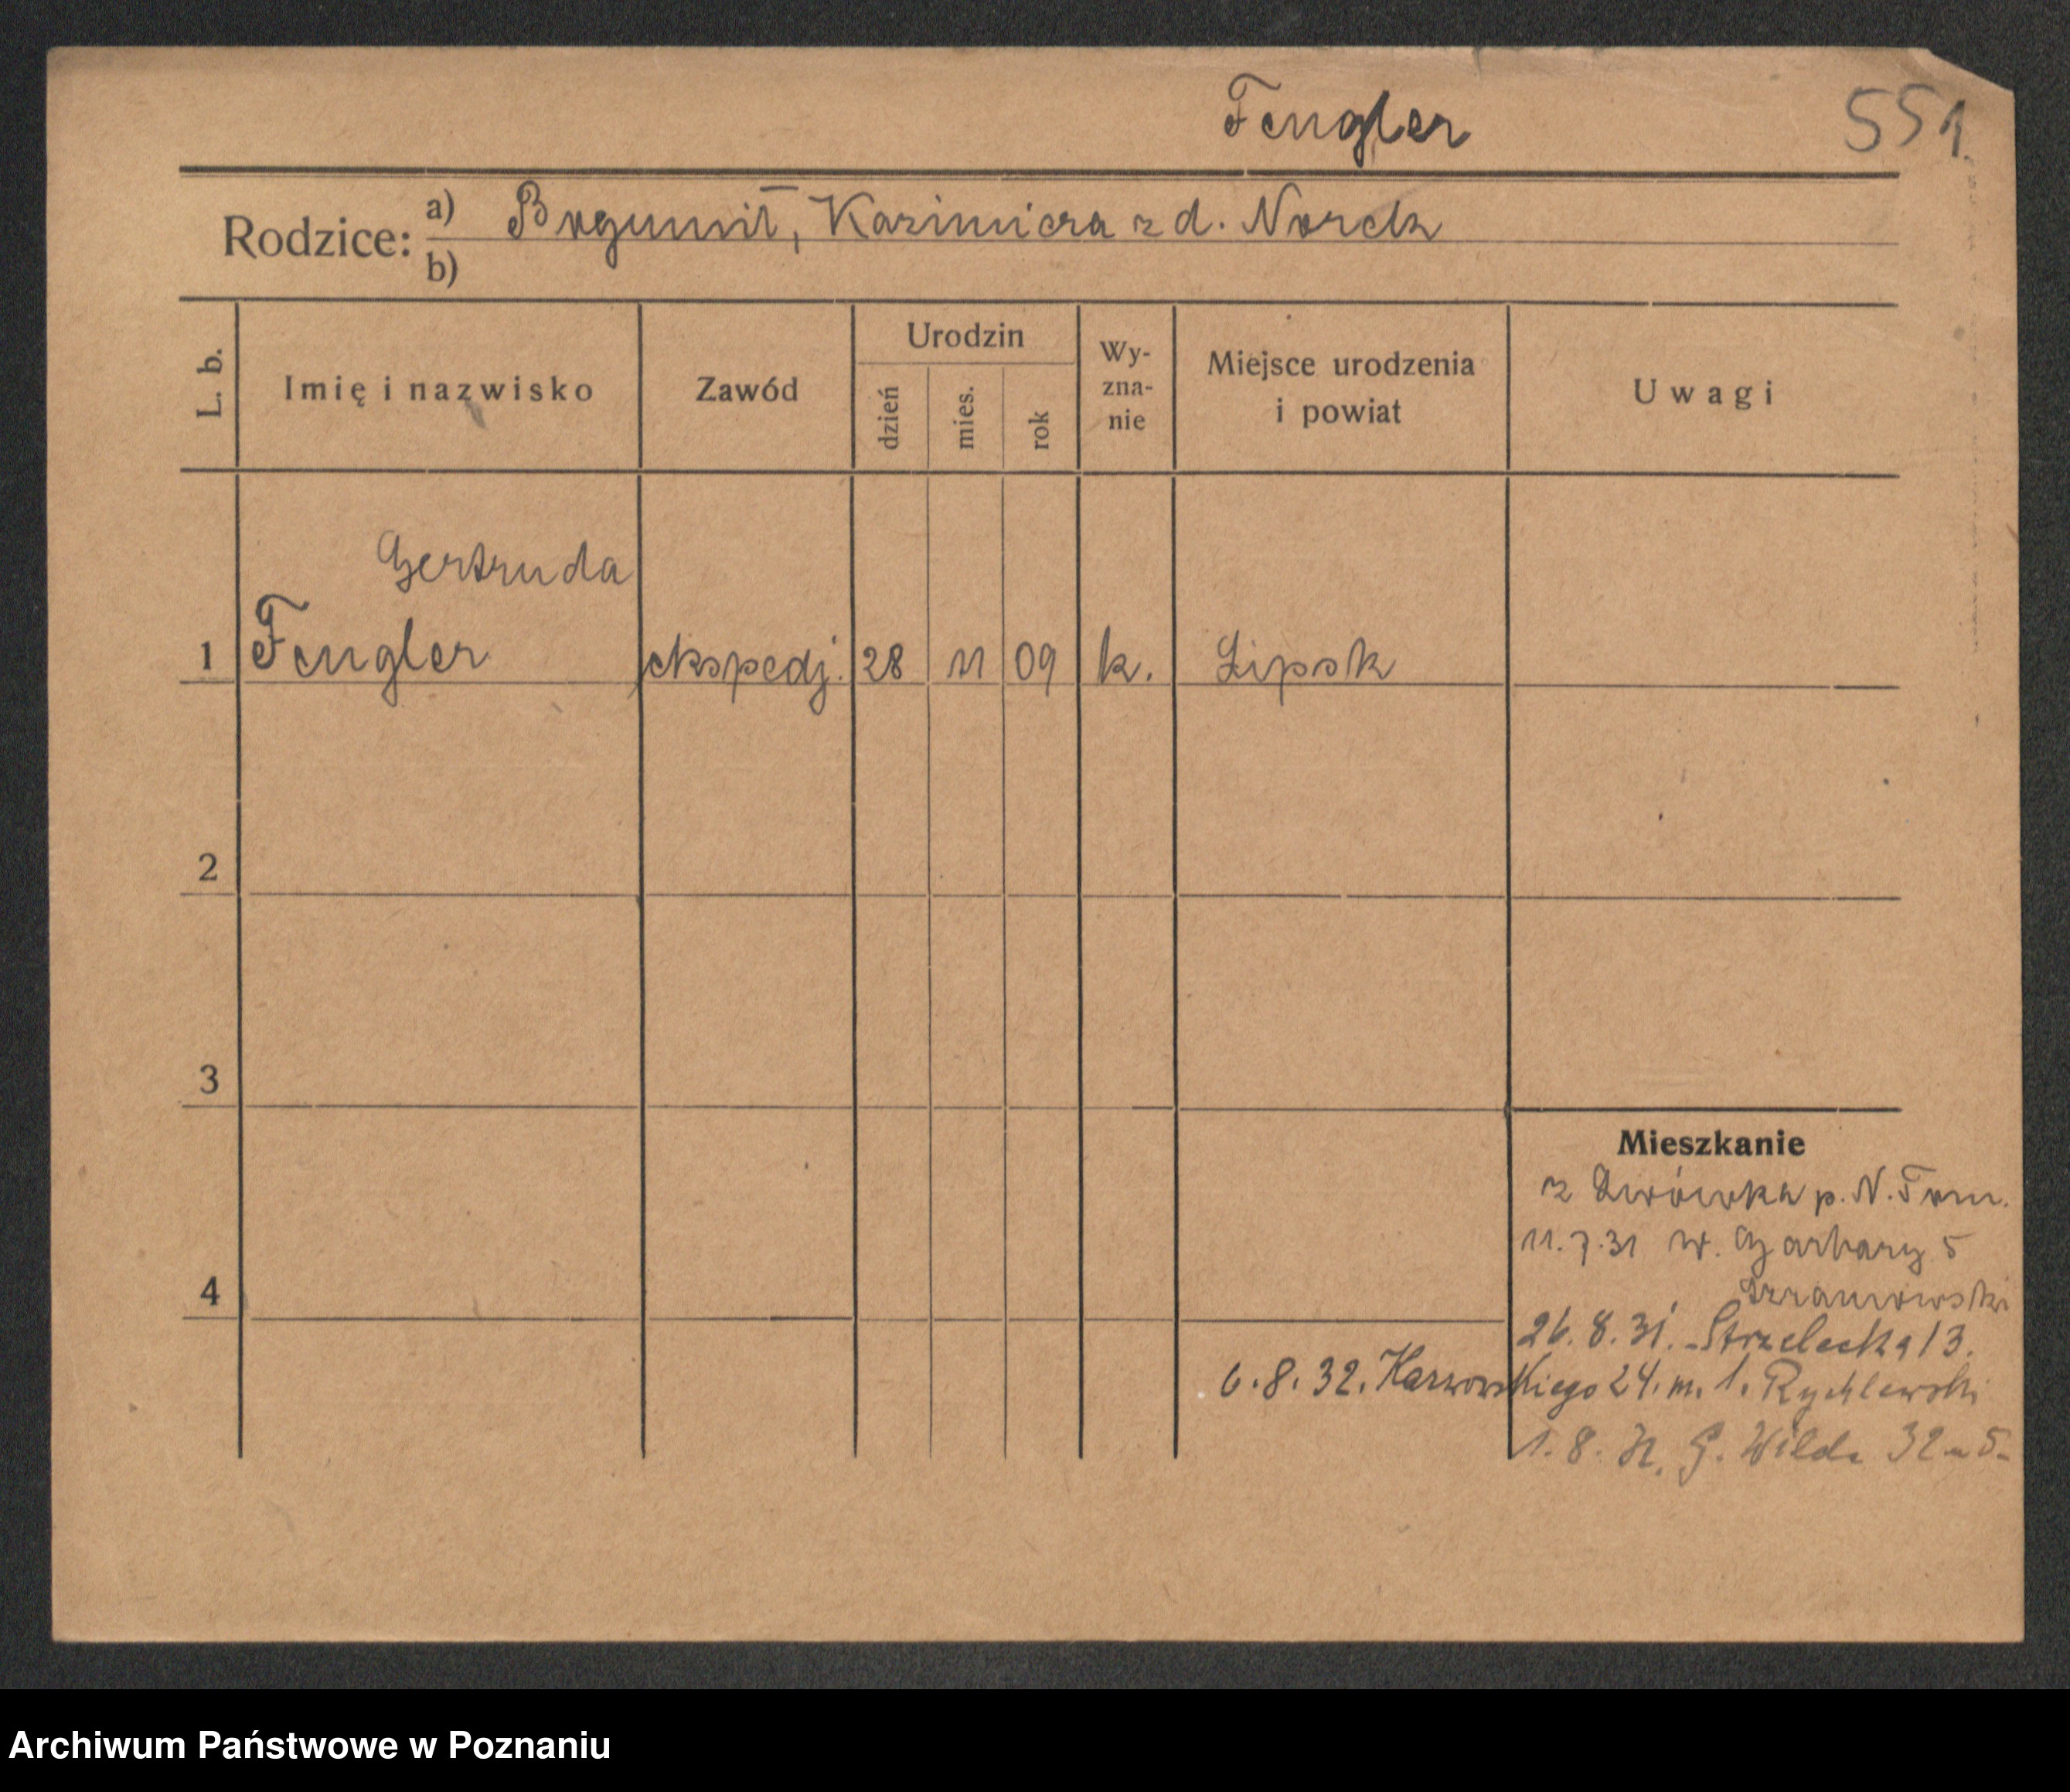 Fengler 551.
Rodzice: a) Bogumił, Kazimiera z d. Norek
b)
L. b. Imię i nazwisko Zawód Urodzin dzień mies. rok Wy-zna-nie Miejsce urodzenia i powiat Uwagi
Gertruda
1 Fengler ekspedj. 28 11 09 k. Lipsk
2
3
Mieszkanie
z Lwówka p. N. Tom.
11.7.31 W. Garbary 5
4
26.8.31. Strzelecka 13.
6.8.32. Karwowskiego 24. m. 1. Rychlewski
1.8. G. Wilda 32
Archiwum Państwowe w Poznaniu